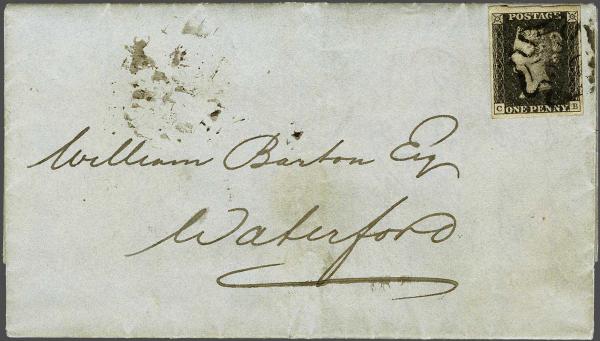 POSTAGE
C B
ONE PENNY.
William Barton Esq
Waterford